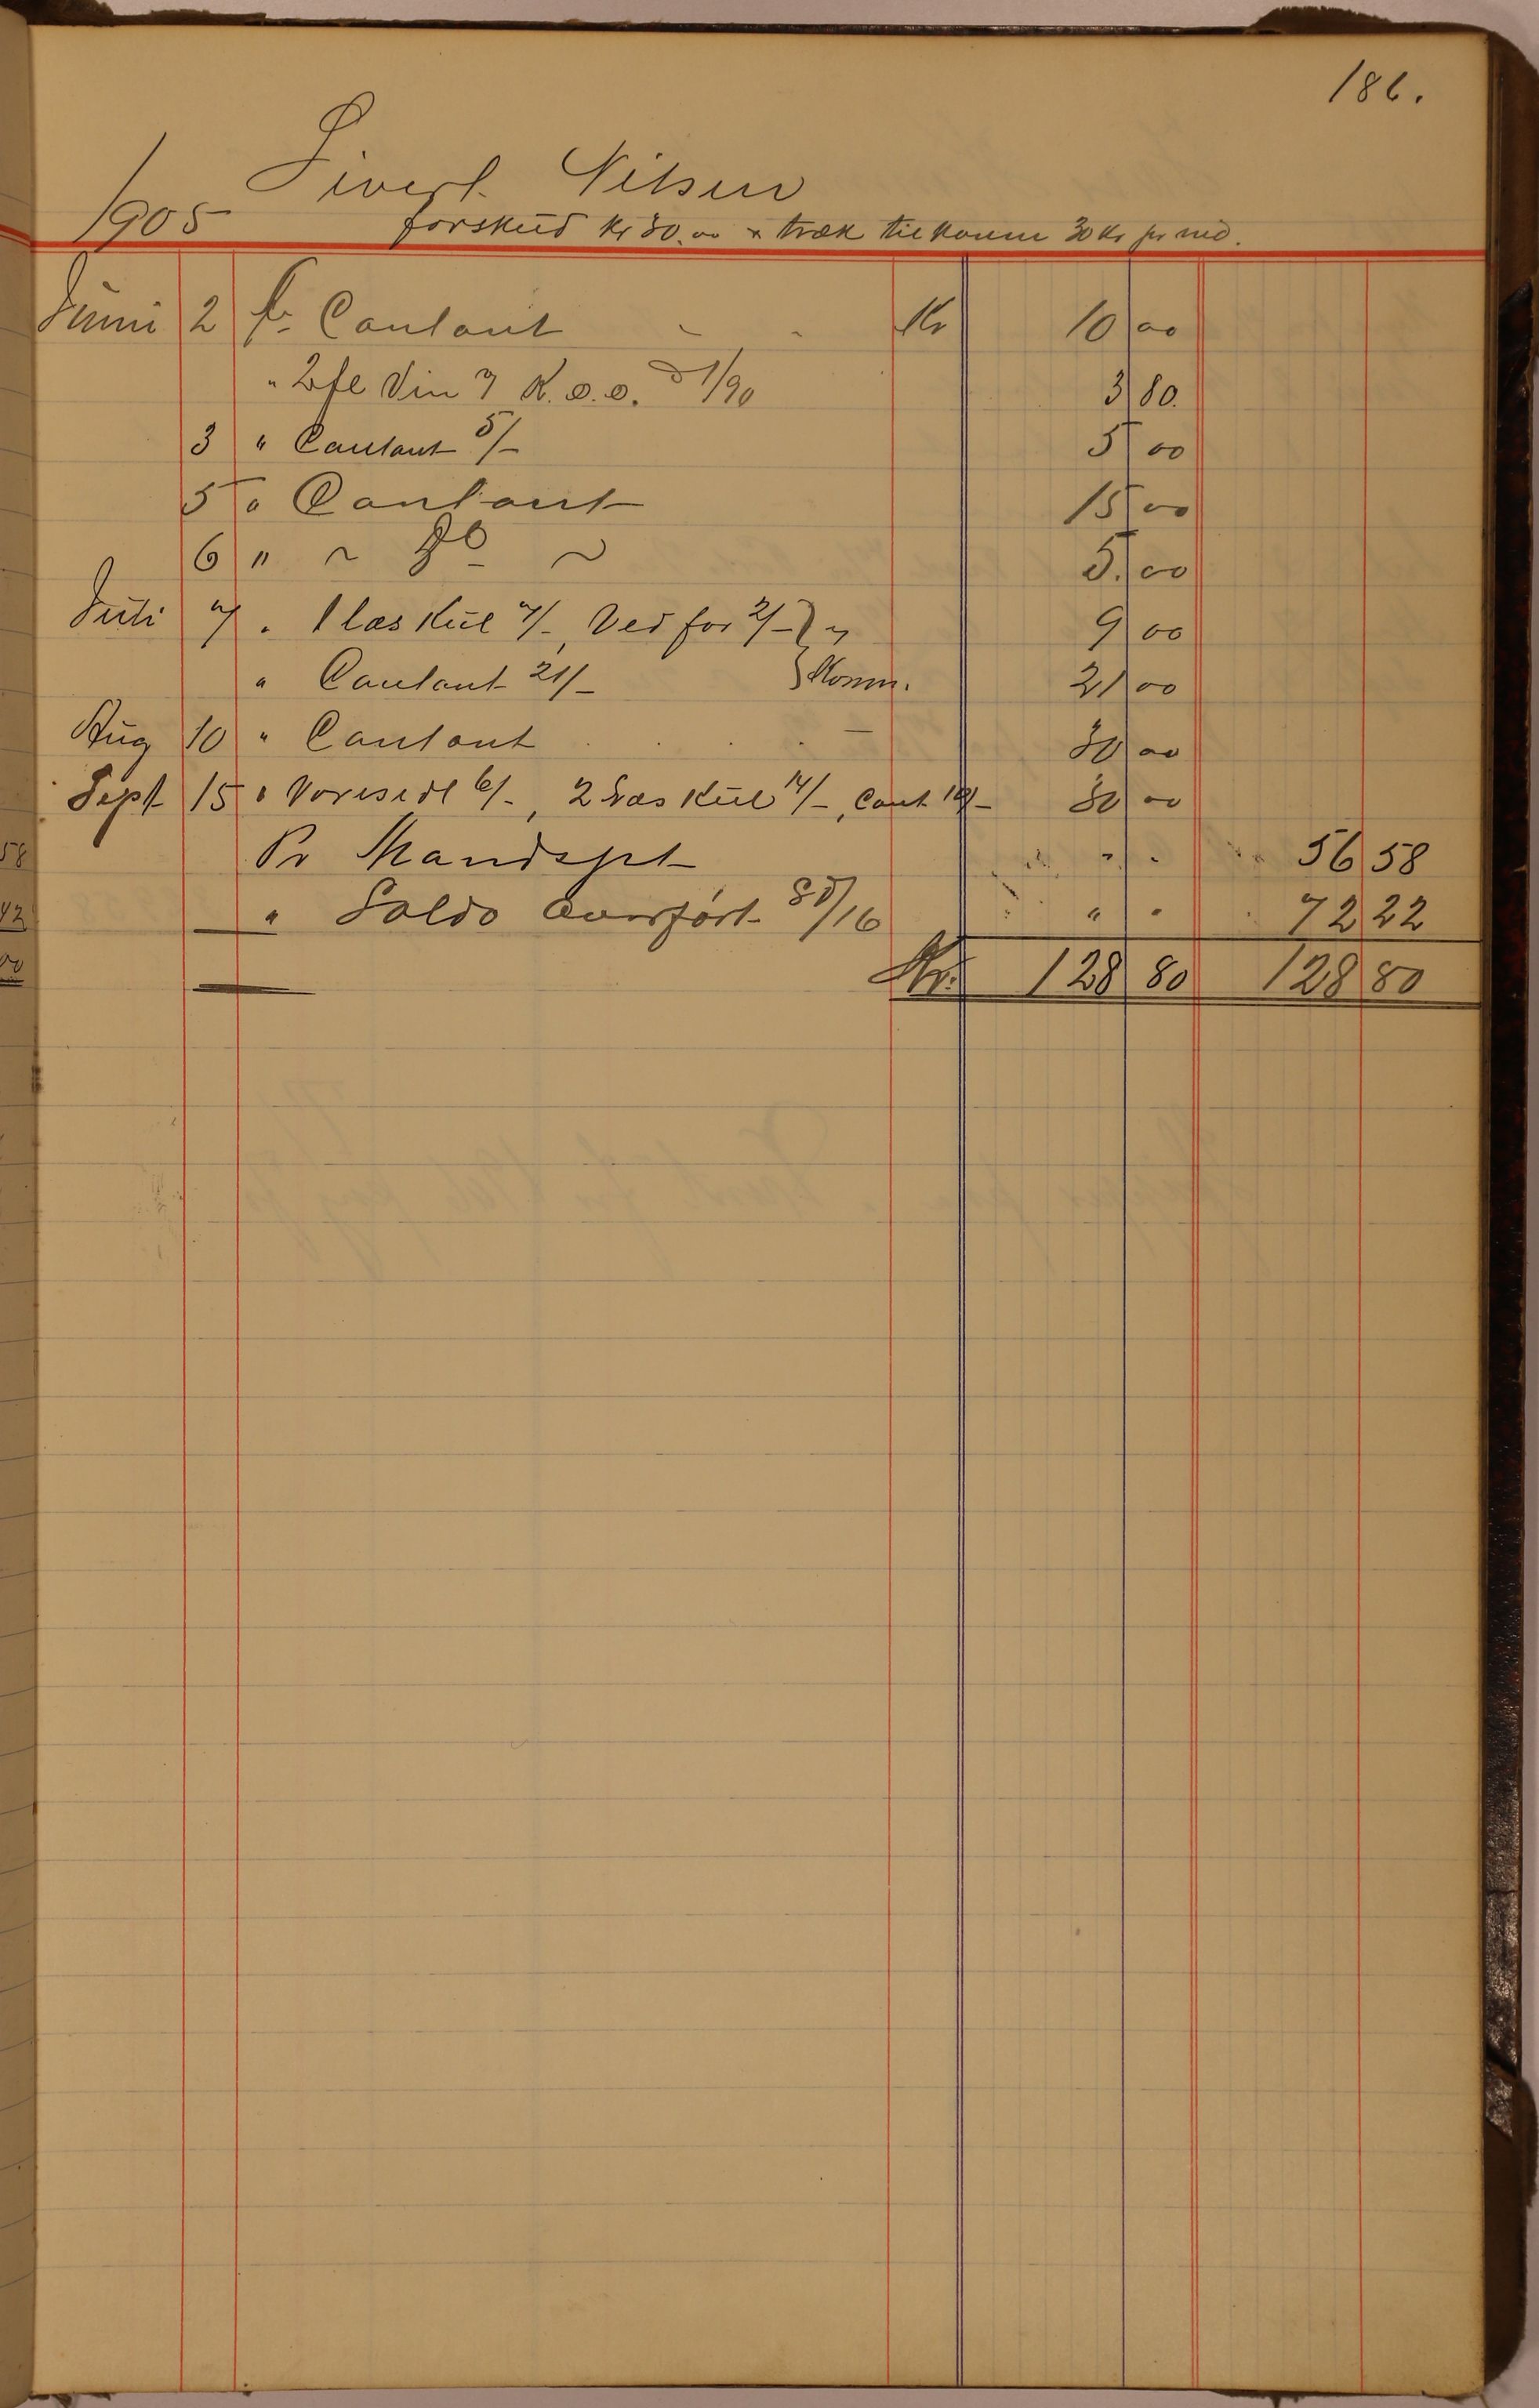 186.
Sivert Nilsen
1905 forskud Kr 30.00 & træk til kone 30 Kr pr md.
Juni 2 fr Contant - - Kr 10 00
" 2 fl Vin 7 K.O.O. à 1/90 3 80
3 " Contant 5/- 5 00
5 " Contant 15 00
6 " ~ Do ~ 5.00
Juli 7 " 1 læs Kul 7/-, Ved for 2/- 9 00
" Contant 21/- Konen. 21 00
Aug 10 " Contant . . . . - 30 00
Sept 15 " 6/-, 2 Læs Kul 14/-, Cont 10/- 30 00
Pr Mandspt " " 56 58
" Saldo Overført 80/16 " " 72 22
Kr: 128 80 128 80
58
42
00